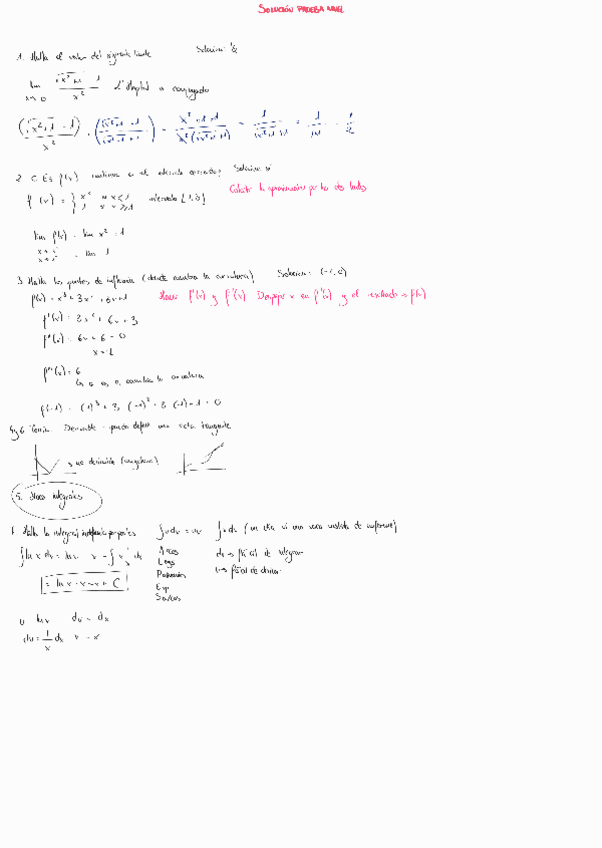 SOLUCIÓN PRUEBA NIVEL
1. Halla el valor del siguiente límite Solución: 1/2
lim x→0 (√(x²+1) - 1)/x² L'Hopital o conjugado
((√(x²+1) - 1)/x²) · ((√(x²+1)+1)/(√(x²+1)+1)) = (x²+1-1)/(x²(√(x²+1)+1)) = 1/(√(x²+1)+1) = 1/(1+1) = 1/2
2. ¿Es f(x) continua en el intervalo cerrado? Solución: si
Calcular la aproximación por los dos lados
f(x) = { x² si x<1
1 si x≥1 intervalo
lim f(x) = lim x² = 1
= lim 1
3. Halla los puntos de inflexión (donde cambia la curvatura) Solución: (-1,0)
f(x) = x³+3x²+3x+1 Hacer f'(x) y f''(x) Despejar x en f''(x) y el resultado → f(x)
f'(x) = 3x²+6x+3
f''(x) = 6x+6=0
x=-1
f'''(x) = 6
cambia la curvatura
f(-1) = (-1)³+3·(-1)²+3·(-1)+1=0
4 y 6 Teoría. Derivable = puedo definir una recta tangente
→ no derivable
5. Hacer integrales
7. Halla la integral indefinida por partes ∫u dv = uv - ∫v du (un día vi una vaca vestida de uniforme)
∫ln x dx = ln x · x - ∫x · 1/x dx Arcos dv → fácil de integrar
Logs u → fácil de derivar
= ln x · x - x + C Polinomios
Exp
Sen/cos
u = ln x dv = dx
du = 1/x dx v = x